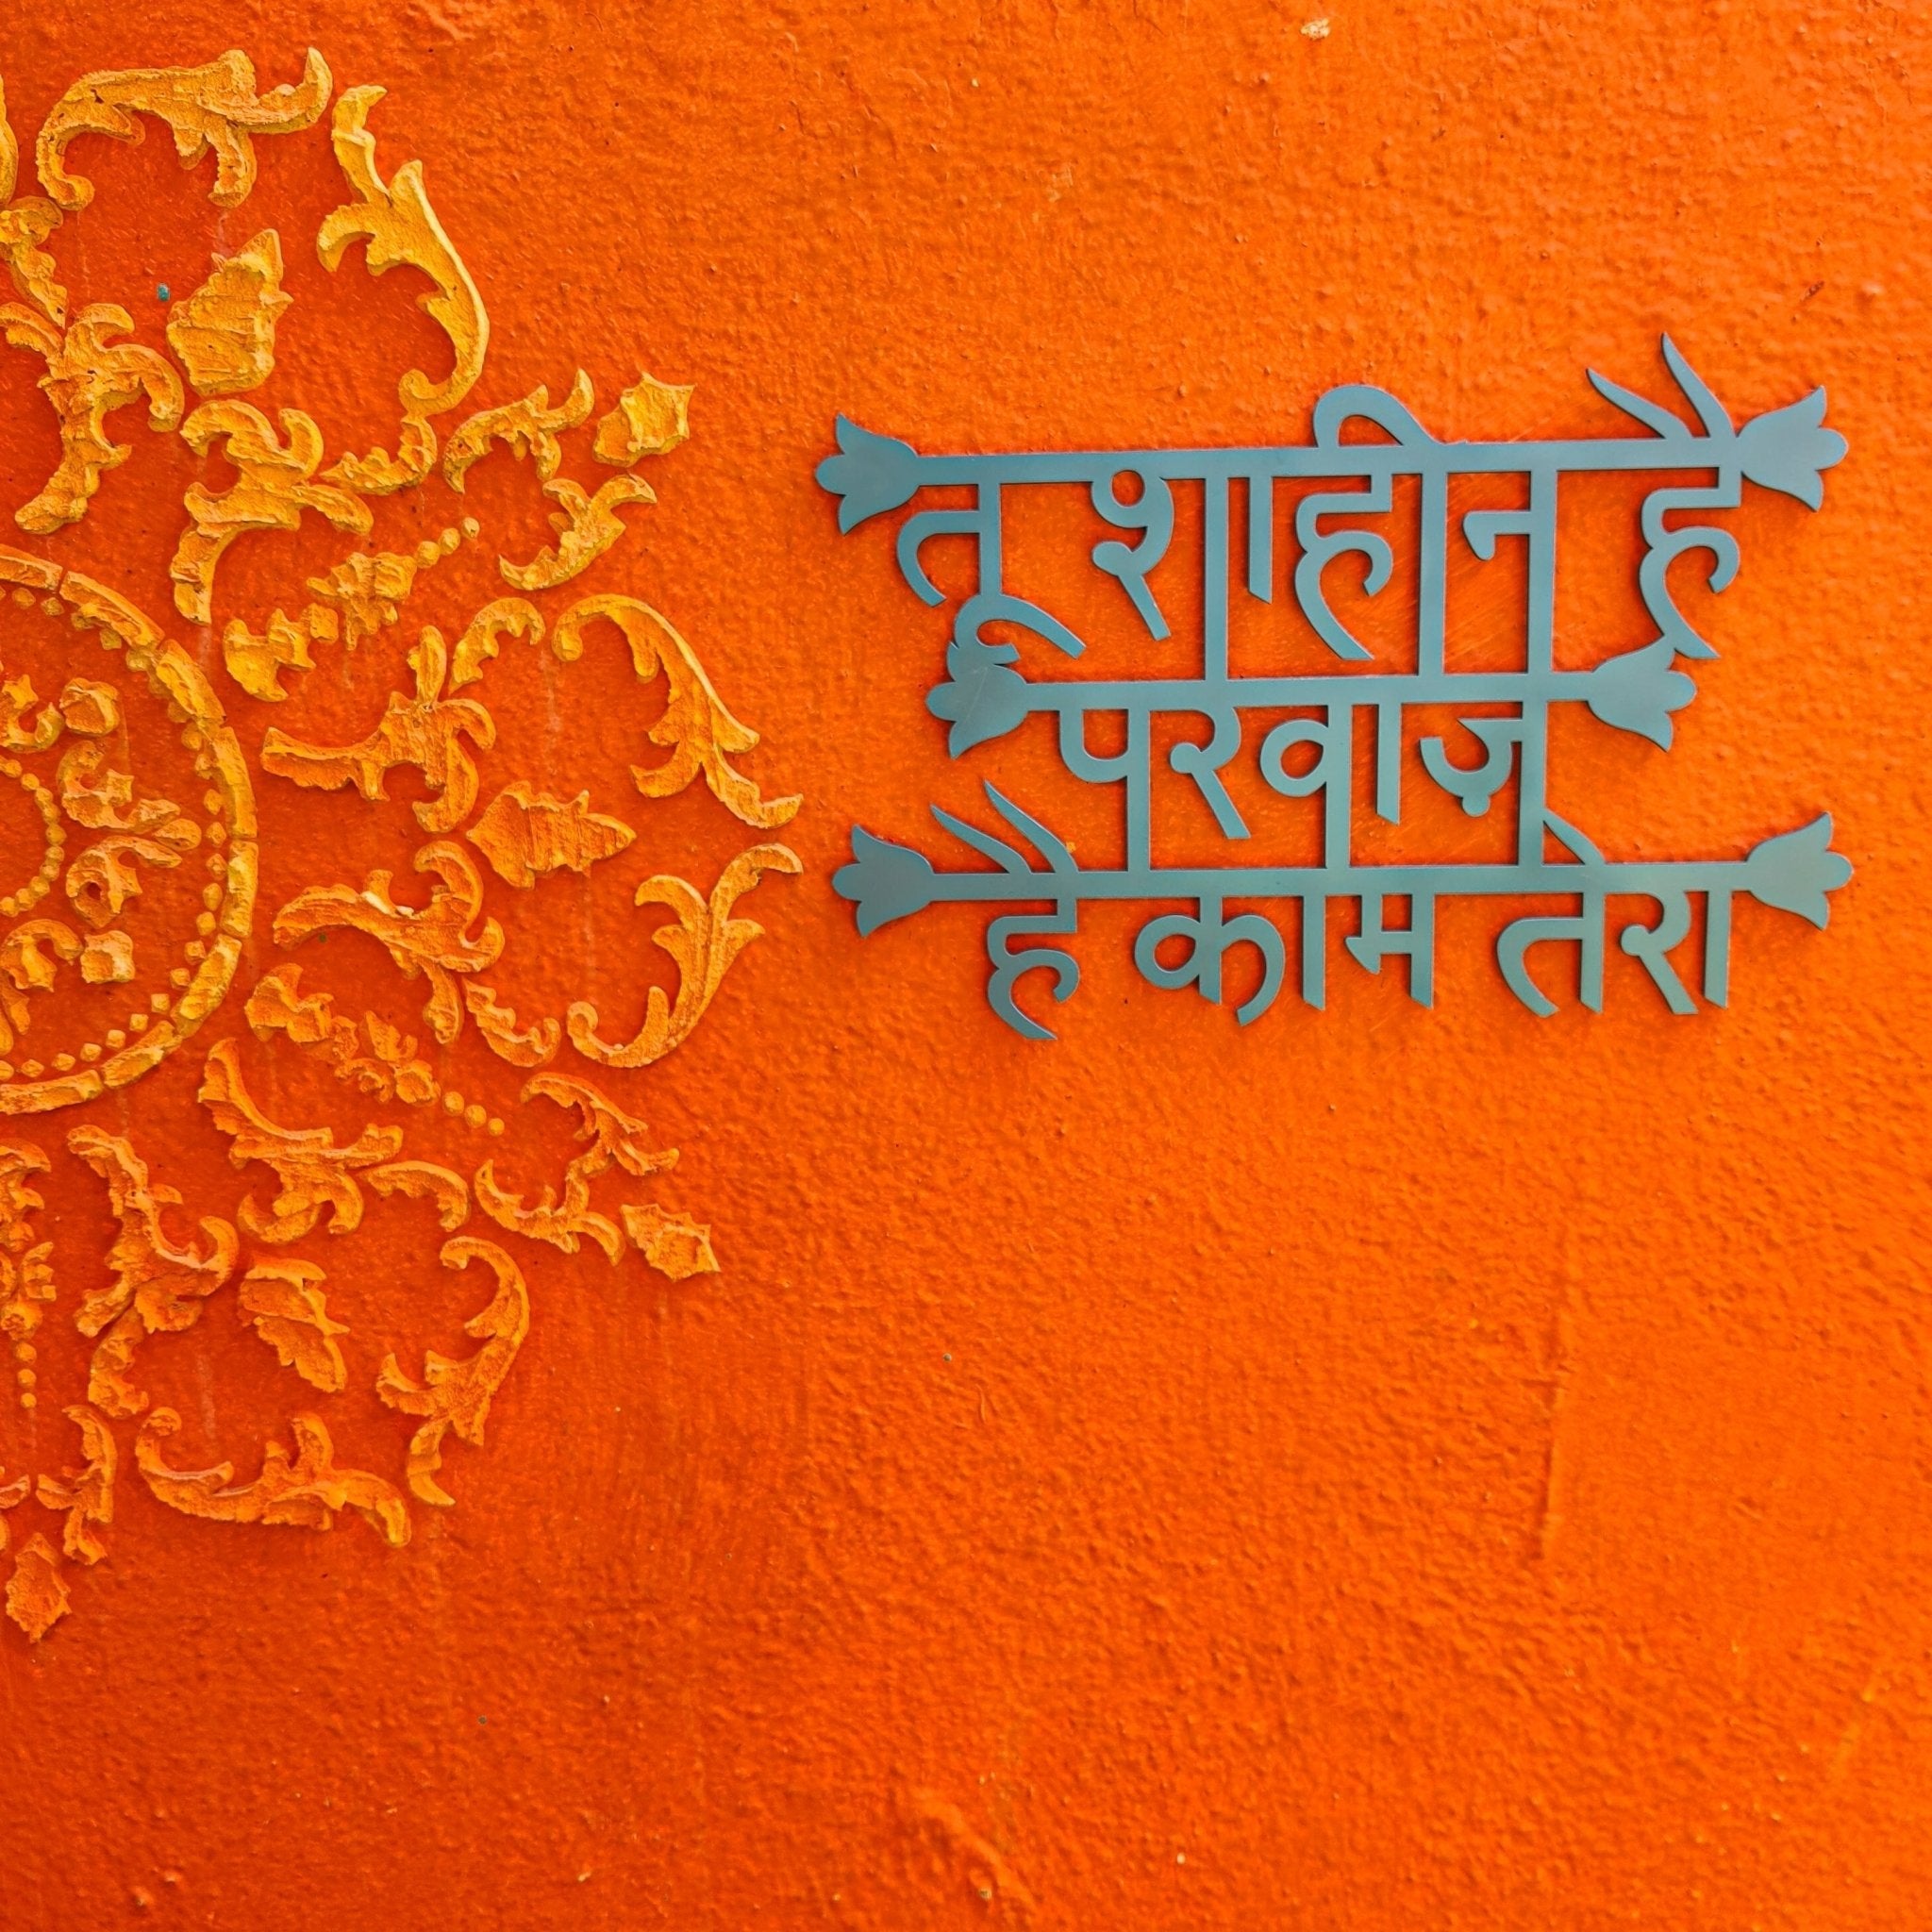 तू शाहीन है
परवाज़
है काम तेरा